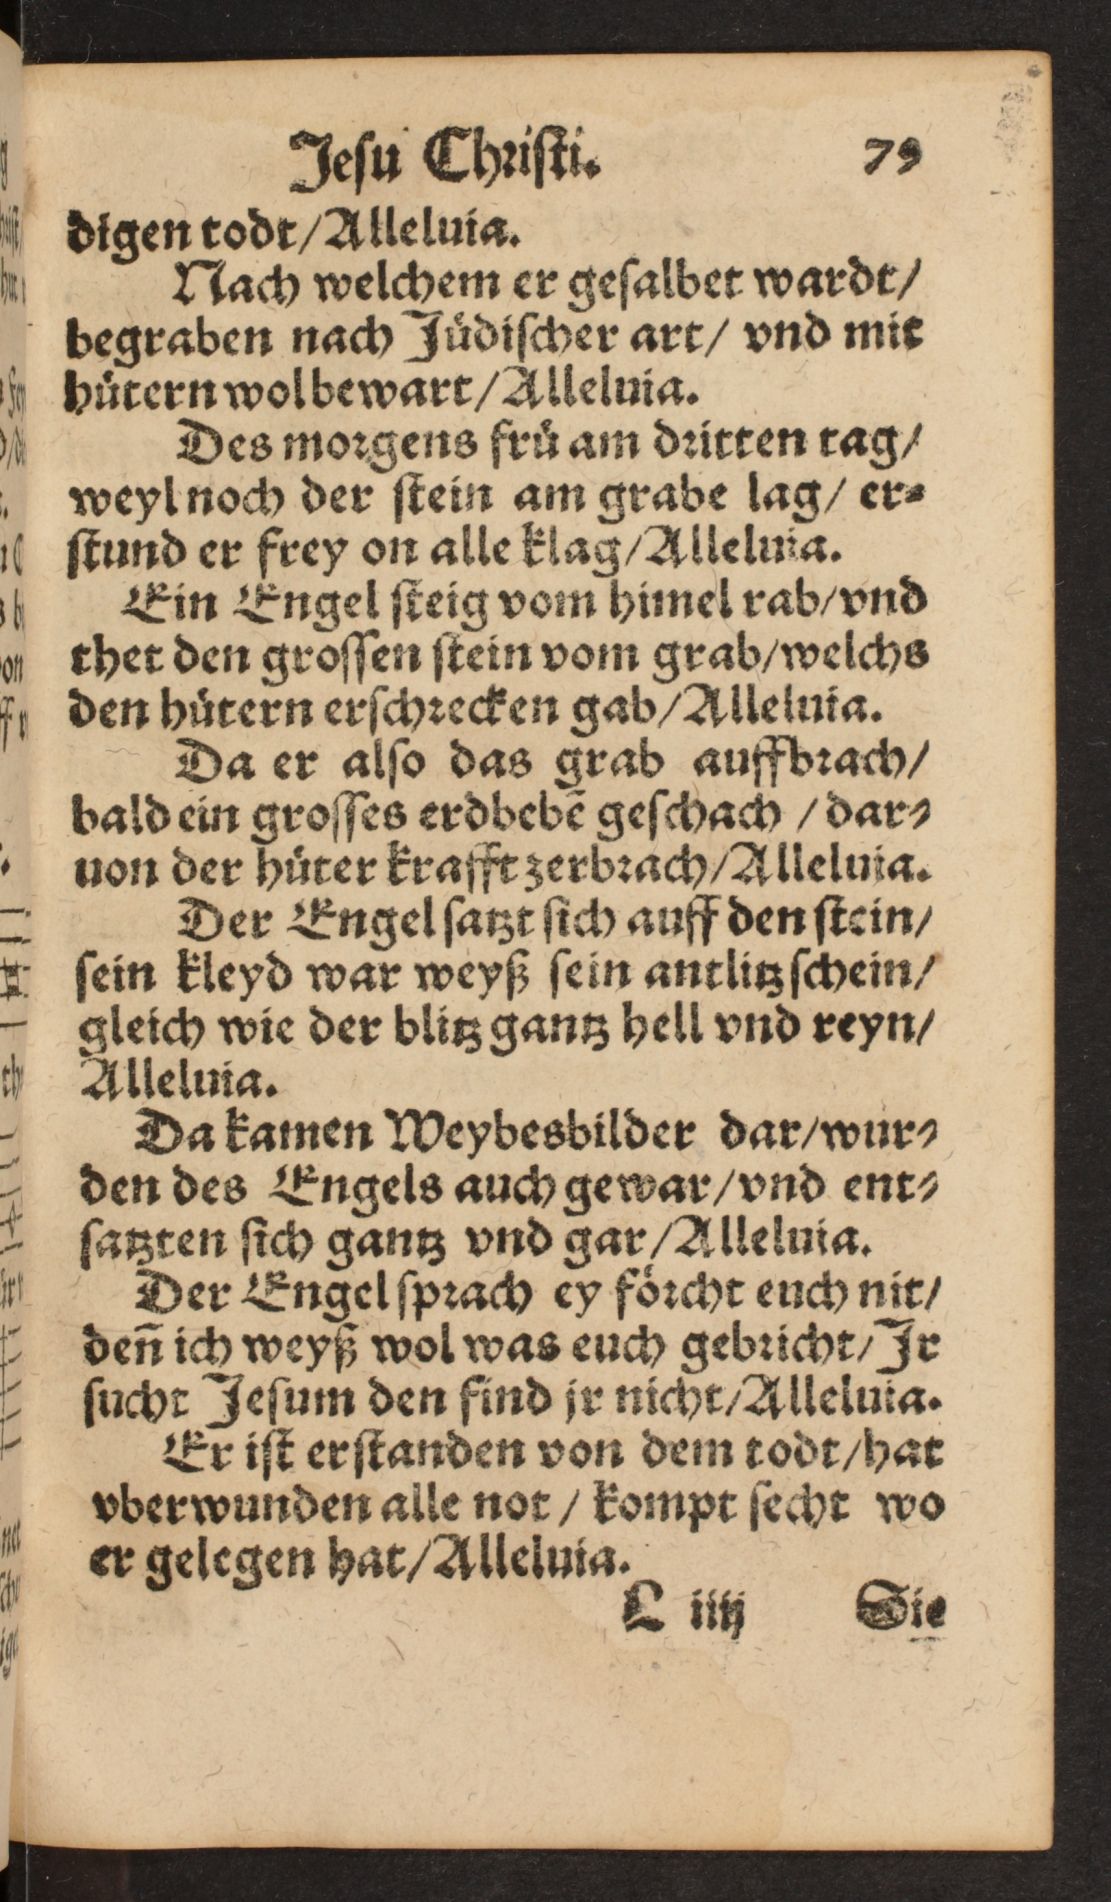 Jesu Christi. 79
digen todt/Alleluia.
Nach welchem er gesalbet wardt/
begraben nach Jüdischer art/ vnd mit
hütern wol bewart/Alleluia.
Des morgens frü am dritten tag/
weyl noch der stein am grabe lag/ er⸗
stund er frey on alle klag/Alleluia.
Ein Engel steig vom himel rab/vnd
thet den grossen stein vom grab/welchs
den hütern erschrecken gab/Alleluia.
Da er also das grab auffbrach/
bald ein grosses erdbebē geschach / dar⸗
uon der hüter krafft zerbrach/Alleluia.
Der Engel satzt sich auff den stein/
sein kleyd war weyß sein antlitz schein/
gleich wie der blitz gantz hell vnd reyn/
Alleluia.
Da kamen Weybesbilder dar/wur⸗
den des Engels auch gewar/vnd ent⸗
satzten sich gantz vnd gar/Alleluia.
Der Engel sprach ey förcht euch nit/
deñ ich weyß wol was euch gebricht/Jr
sucht Jesum den find jr nicht/Alleluia.
Er ist erstanden von dem todt/hat
vberwunden alle not / kompt secht wo
er gelegen hat/Alleluia.
L iiij Sie